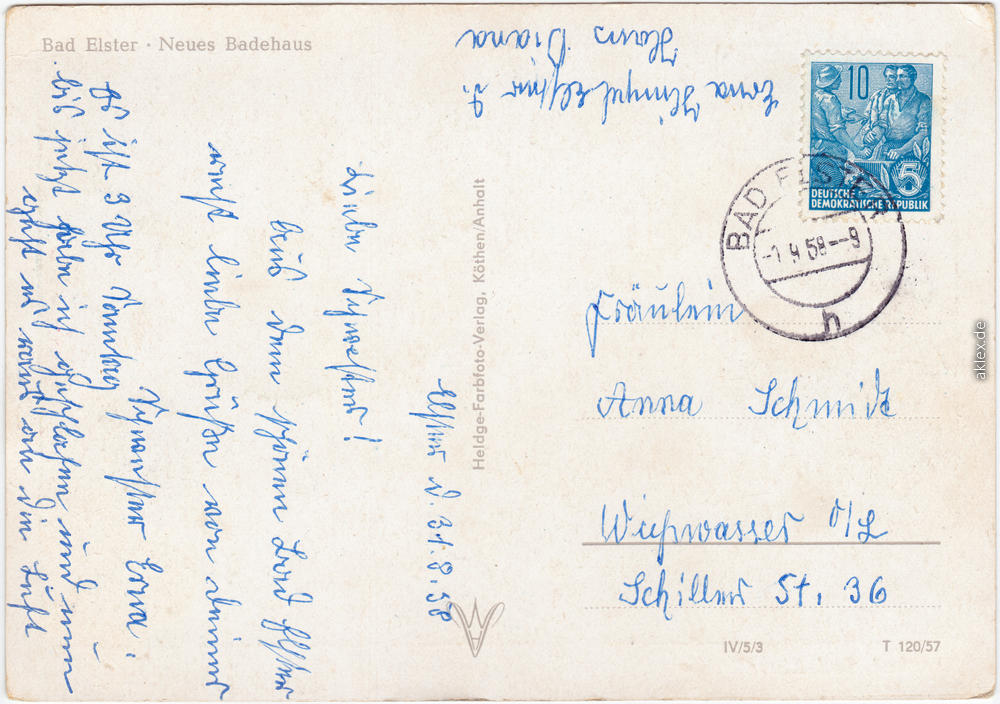 Bad Elster · Neues Badehaus
Erna Himpel Elster I.
Haus Diana
Elster d. 31.8.58
Liebe Schwester!
Aus dem schönen Bad Elster
recht liebe Grüße von deiner
Schwester Erna.
Es ist 9 Uhr Sonntag
bis jetzt habe ich geschlafen und nun
geht es raus an die Luft
Heldge-Farbfoto-Verlag, Köthen/Anhalt
10
5
DEUTSCHE
DEMOKRATISCHE REPUBLIK
BAD ELSTER
-1.9.58--9
h
Fräulein
Anna Schmidt
Weißwasser O/L
Schiller St. 36
IV/5/3
T 120/57
aklex.de